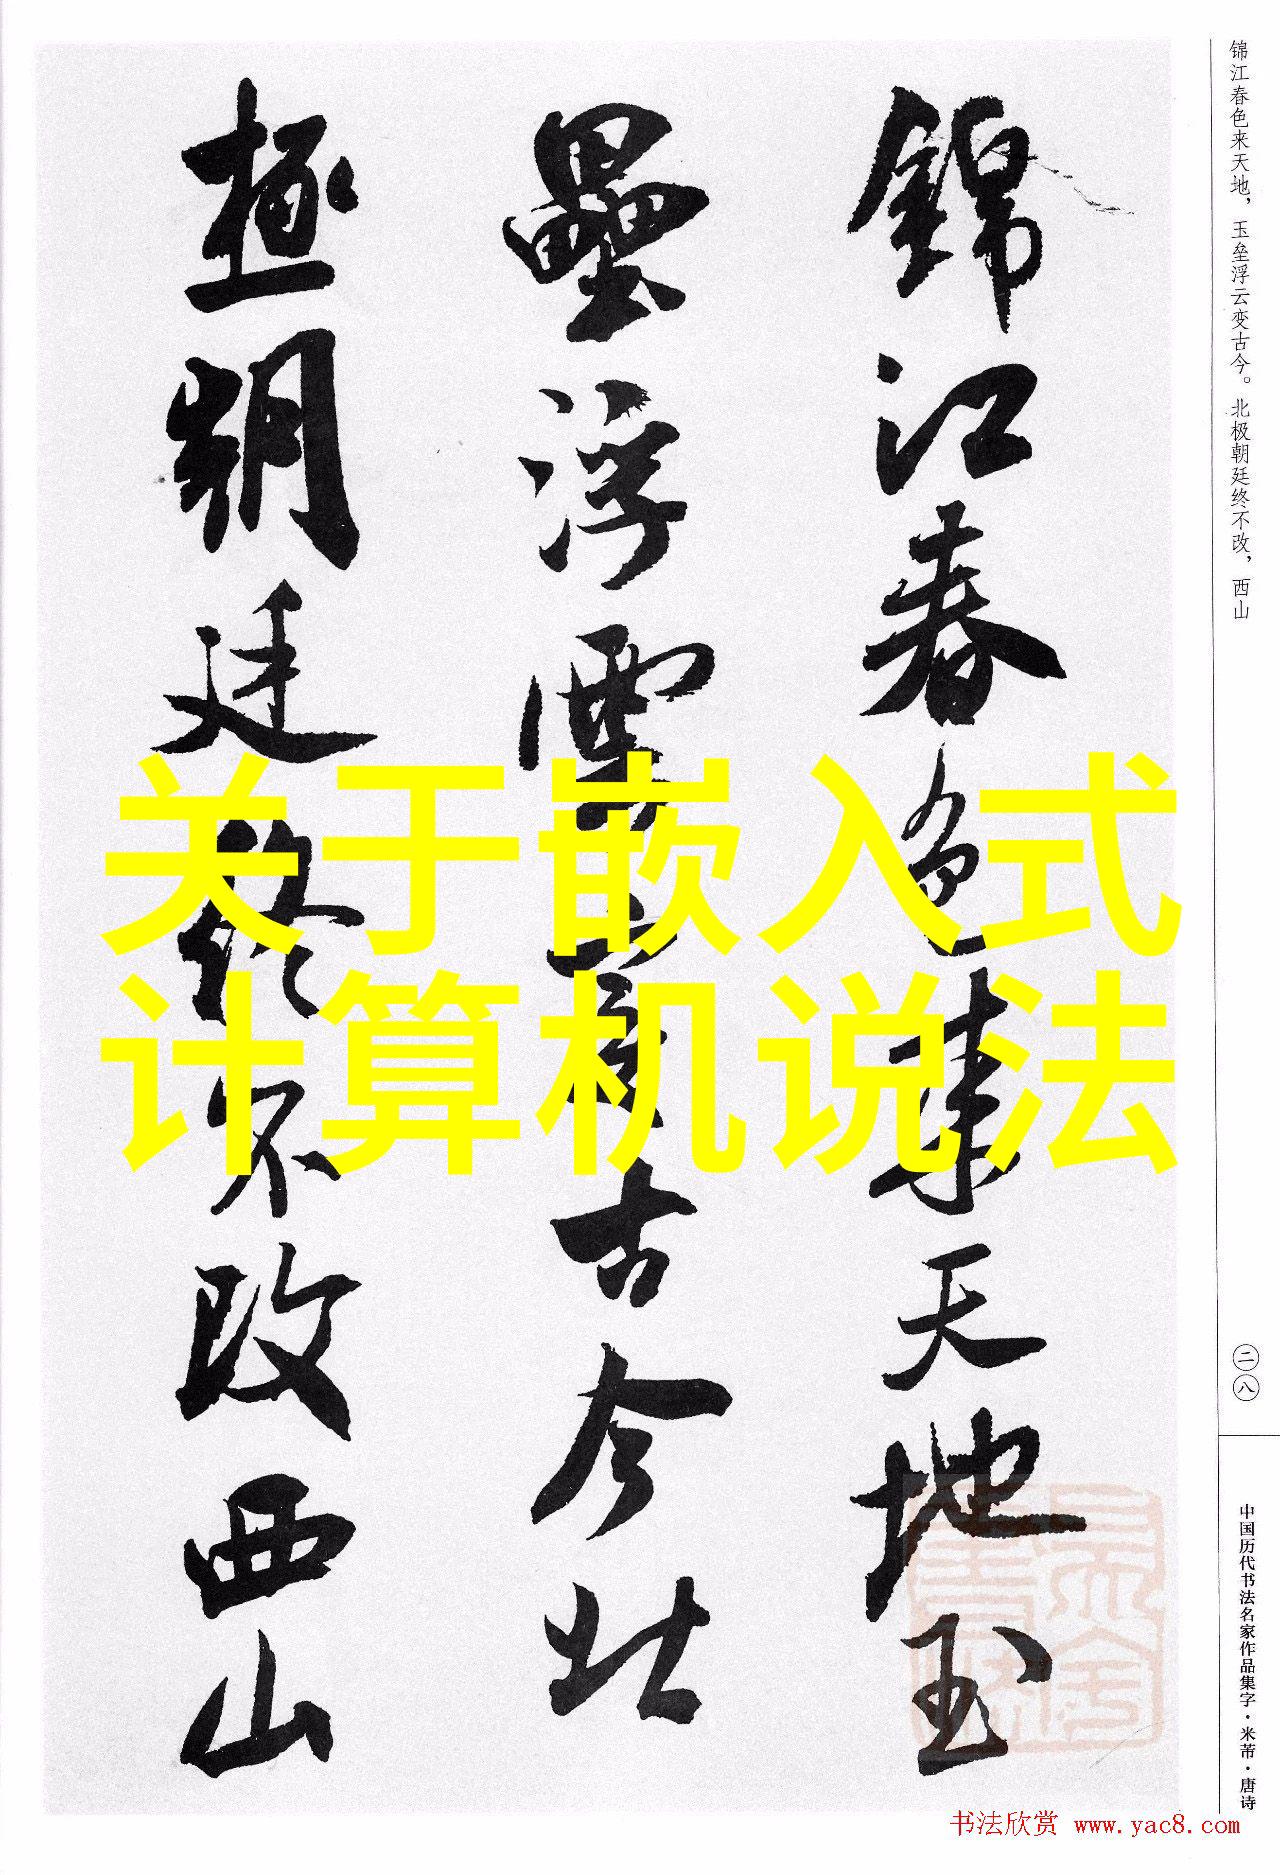 锦江春色来天地，玉垒浮云变古今。北极朝廷终不改，西山
錦江春色來天地玉
壘浮雲變古今北
極朝廷終不改西山
关于嵌入式
计算机说法
二八
中国历代书法名家作品集字·米芾·唐诗
书法欣赏 www.yac8.com